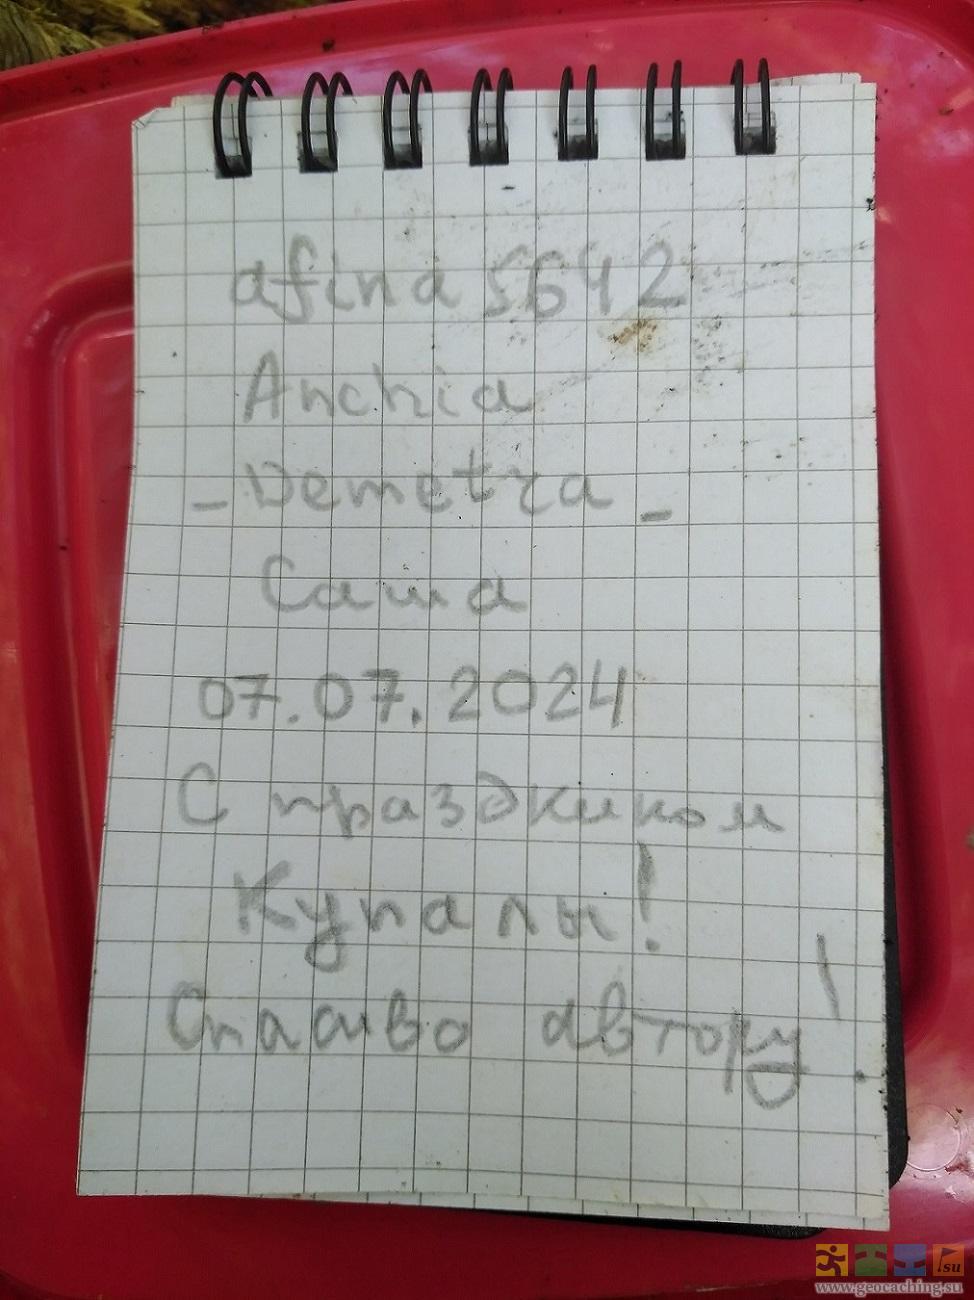 afina5642
Anchia
_Demetra_
Саша
07.07.2024
С праздником
Купалы!
Спасибо автору!
.su
www.geocaching.su